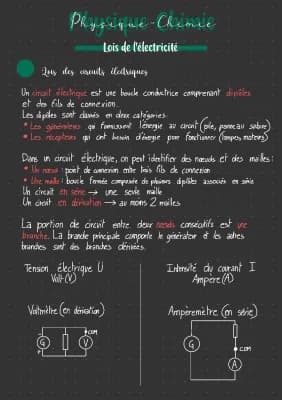 Physique-Chimie
Lois de l'électricité
Lois des circuits électriques
Un circuit électrique est une boucle conductrice comprenant dipôles
et des fils de connexion.
Les dipôles sont classés en deux catégories.
* Les générateurs qui fournissent l'énergie au circuit (pile, panneau solaire)
* Les récepteurs qui ont besoin d'énergie pour fonctionner (lampes, moteurs)
Dans un circuit électrique, on peut identifier des nœuds et des mailles:
* Un nœud : point de connexion entre trois fils de connexion
* Une maille : boucle fermée composée de plusieurs dipôles associés en série.
Un circuit en série → une seule maille
Un circuit en dérivation → au moins 2 mailles
La portion de circuit entre deux nœuds consécutifs est une
branche. La branche principale comporte le générateur et les autres
branches sont des branches dérivées.
Tension électrique U
Volt (V)
Intensité du courant I
Ampère (A)
Voltmètre (en dérivation)
Ampèremètre (en série)
G
V
COM
G
COM
A